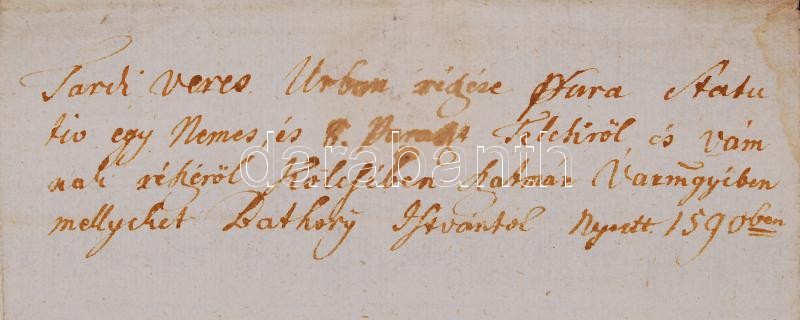 Tardi veres Urban részére Pura Statu
tio egy Nemes és 8. Paraszt Telekiröl és vám
nak részéröl Kölcsében Szatmar Vármgyében
mellyeket Bathory Istvántol Nyertt 1590ben
darabanth